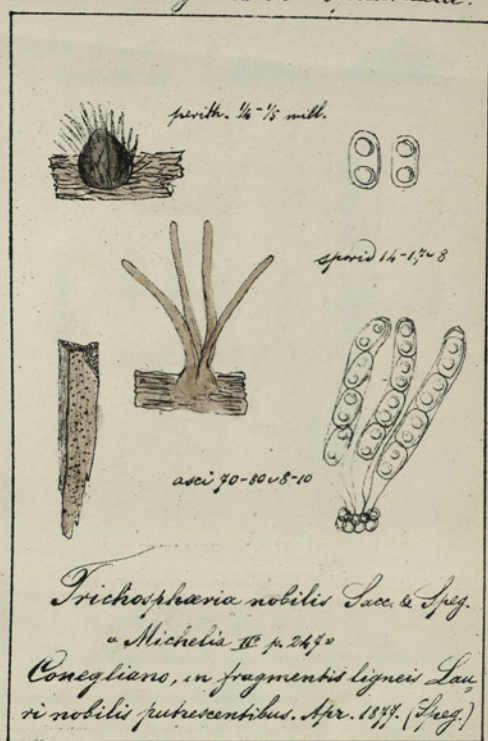 perith. 1/6-1/5 mill.
sporid 14-17 v 8
asci 70-80 v 8-10
Trichosphæria nobilis Sacc. & Speg.
« Michelia II° p. 247 »
Conegliano, in fragmentis ligneis Lau-
ri nobilis putrescentibus. Apr. 1877. (Speg.)